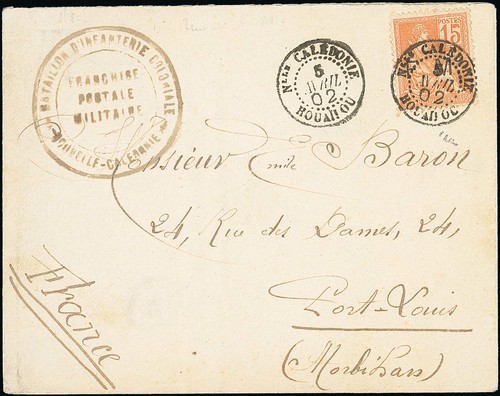 BATAILLON D'INFANTERIE COLONIALE
FRANCHISE
POSTALE
MILITAIRE
NOUVELLE-CALÉDONIE
Nlle CALÉDONIE
5
AVRIL
02
HOUAÏLOU
POSTES
15
Nlle CALÉDONIE
5
AVRIL
02
HOUAÏLOU
Monsieur Emile Baron
24, Rue des Dames, 24,
Port-Louis
(Morbihan)
France